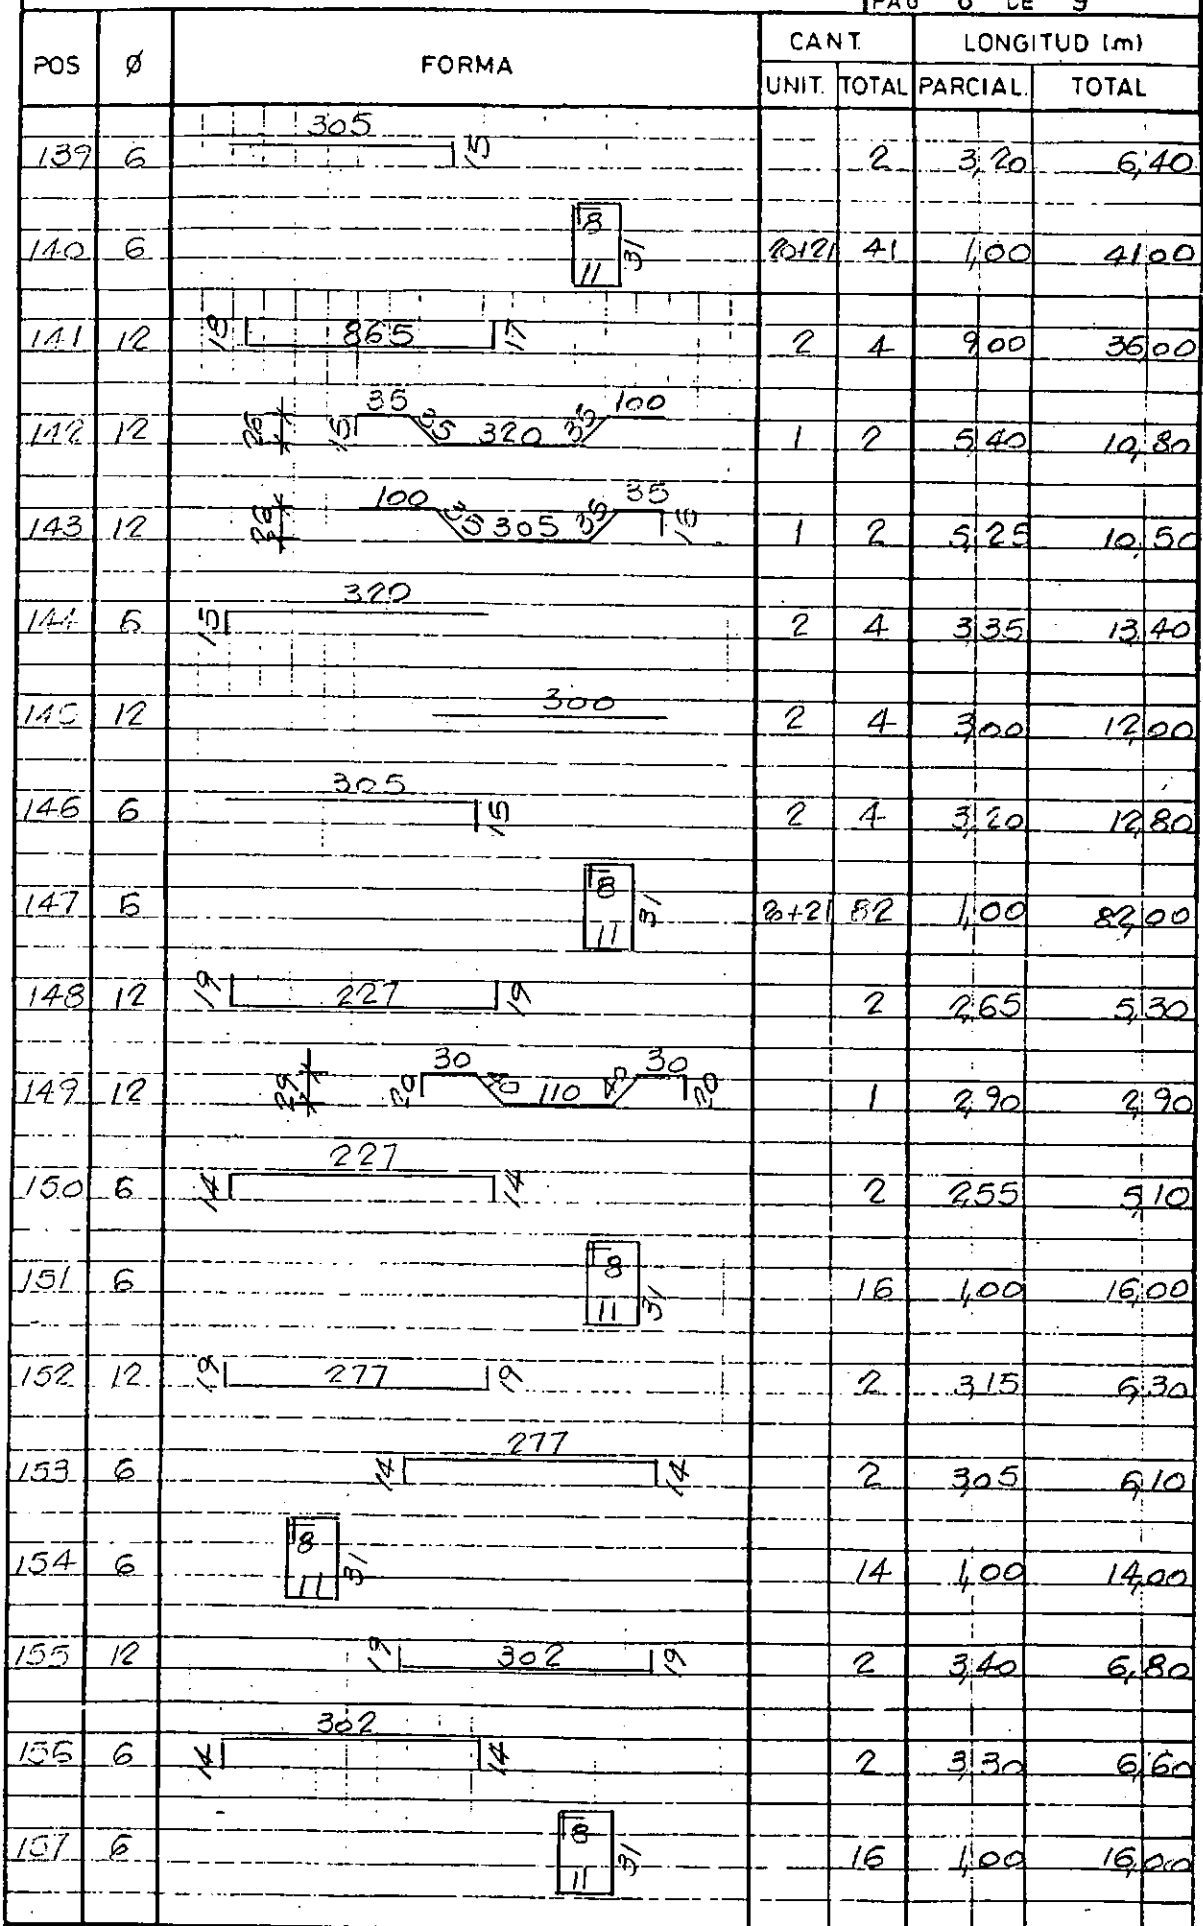 PAG 8 DE 9
POS Ø FORMA CANT. LONGITUD (m)
UNIT. TOTAL PARCIAL. TOTAL
139 6 305 15 2 3,20 6,40
140 6 8 11 31 20+21 41 1,00 41,00
141 12 18 865 17 2 4 9,00 36,00
142 12 26 15 35 35 320 35 100 1 2 5,40 10,80
143 12 26 100 35 305 35 35 15 1 2 5,25 10,50
144 6 15 320 2 4 3,35 13,40
145 12 300 2 4 3,00 12,00
146 6 305 15 2 4 3,20 12,80
147 6 8 11 31 82 1,00 82,00
148 12 19 227 19 2 2,65 5,30
149 12 29 20 30 40 110 30 20 1 2,90 2,90
150 6 14 227 14 2 2,55 5,10
151 6 8 11 31 16 1,00 16,00
152 12 19 277 19 2 3,15 6,30
153 6 14 277 14 2 3,05 6,10
154 6 8 11 31 14 1,00 14,00
155 12 19 302 19 2 3,40 6,80
156 6 14 302 14 2 3,30 6,60
157 6 8 11 31 16 1,00 16,00